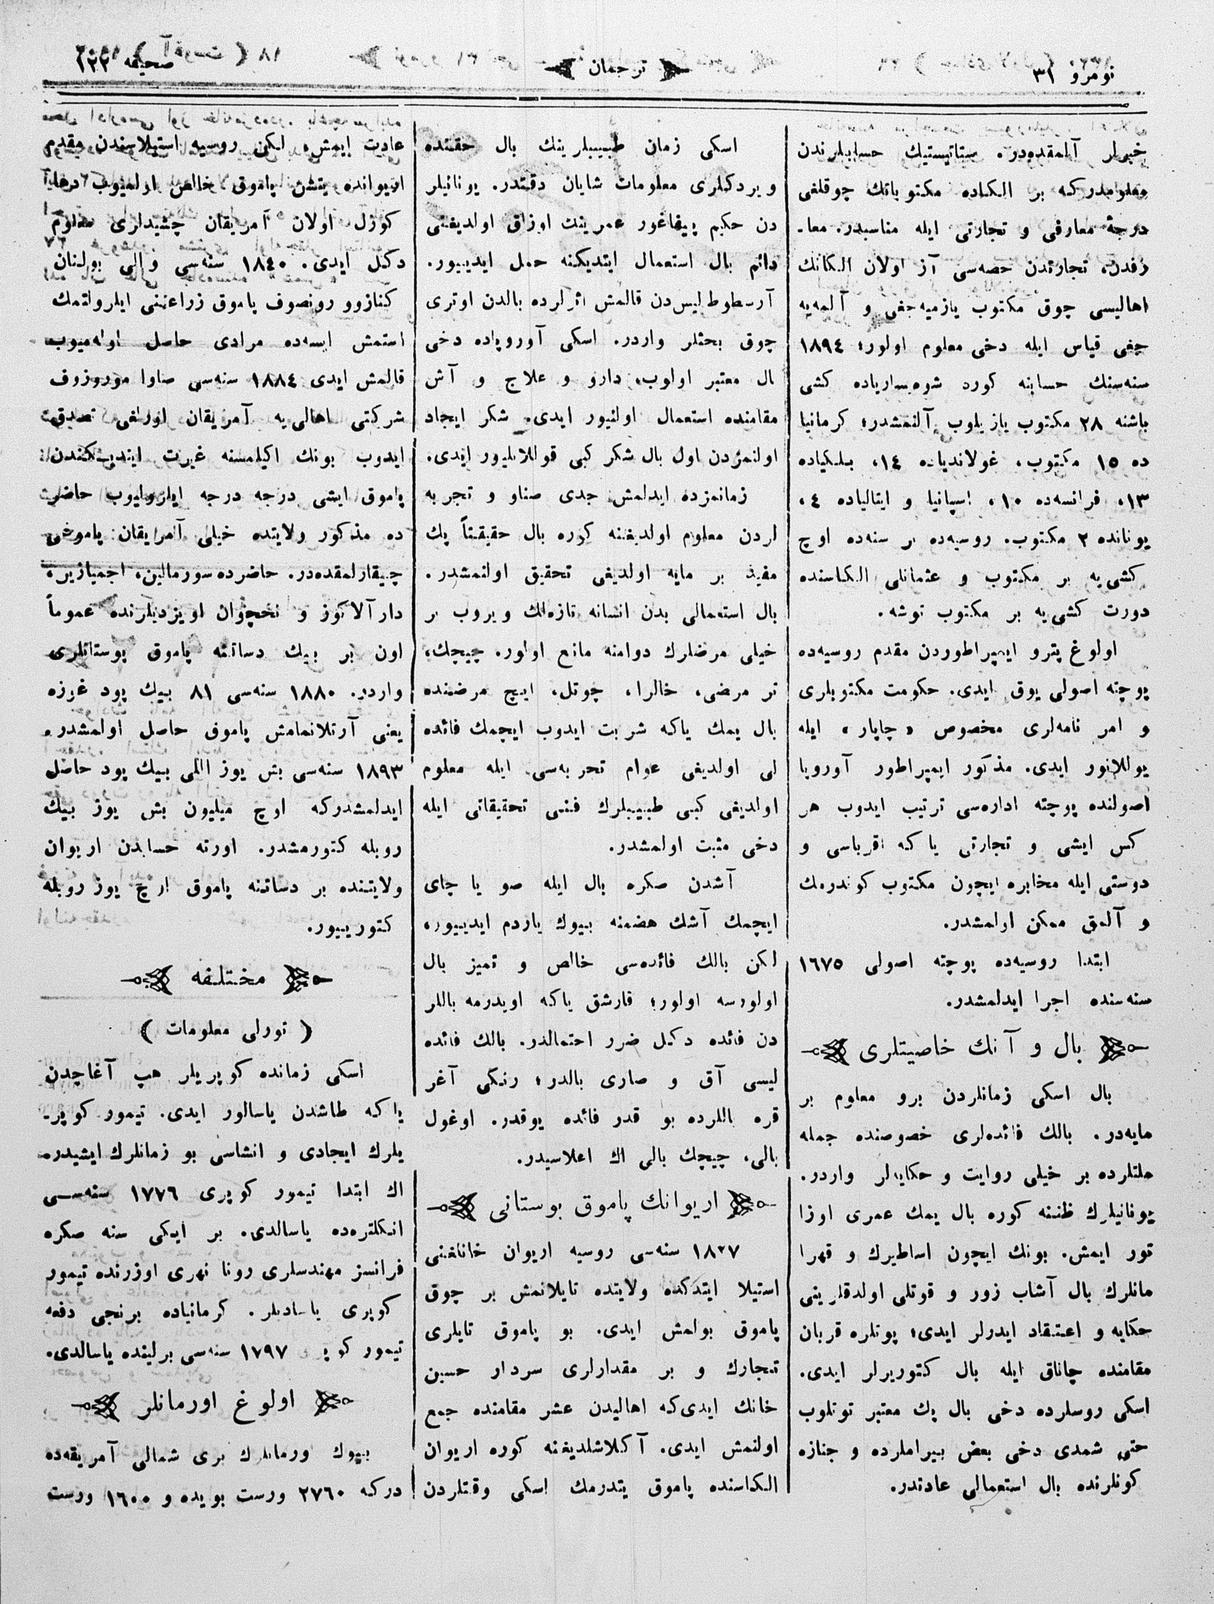 نومرو ٣١
ترجمان
صحيفه ١٢٢
خبرلر آلمقده‌در. ستاتيستيك حسابلرندن
معلومدركه بر الكاده مكتوباتك چوقلغى
درجهٔ معارفى و تجارتى ايله مناسبدر. معا-
رفدن، تجارتدن حصه‌سى آز اولان الكانك
اهاليسى چوق مكتوب يازميه‌جغى و آلمه‌يه
جغى قياس ايله دخى معلوم اولور؛ ١٨٩٤
سنه‌سنك حسابنه كوره شوه‌يساريا‌ده كشى
باشنه ٢٨ مكتوب يازيلوب آلنمشدر؛ كرمانيا
ده ١٥ مكتوب، غولانديا‌ده ١٤، بلكياده
١٣، فرانسه‌ده ١٠، اسپانيا و ايتالياده ٤،
يونانده ٢ مكتوب. روسيه‌ده بر سنه‌ده اوچ
كشى‌يه بر مكتوب و عثمانلى الكاسنده
دورت كشى‌يه بر مكتوب توشه.
اولوغ پترو ايمپراطوردن مقدم روسيه‌ده
پوچته اصولى يوق ايدى. حكومت مكتوبلرى
و امر نامه‌لرى مخصوص «چاپار» ايله
يوللانور ايدى. مذكور ايمپراطور آوروپا
اصولنده پوچته اداره‌سى ترتيب ايدوب هر
كس ايشى و تجارتى ياكه اقرباسى و
دوستى ايله مخابره ايچون مكتوب كوندرمك
و آلمق ممكن اولمشدر.
ابتدا روسيه‌ده پوچته اصولى ١٦٧٥
سنه‌سنده اجرا ايدلمشدر.
بال و آنك خاصيتلرى
بال اسكى زمانلردن برو معلوم بر
مايه‌در. بالك فائده‌لرى خصوصنده جمله
ملتلرده بر خيلى روايت و حكايه‌لر واردر.
يونانيلرك ظننه كوره بال يمك عمرى اوزا
تور ايمش. بونك ايچون اساطيرك و قهرا
مانلرك بال آشاب زور و قوتلى اولدقلرينى
حكايه و اعتقاد ايدرلر ايدى؛ پوتلره قربان
مقامنده چاناق ايله بال كتوررلر ايدى.
اسكى روسلرده دخى بال پك معتبر توتلوب
حتى شمدى دخى بعض بيراملرده و جنازه
كونلرنده بال استعمالى عادتدر.
اسكى زمان طبيبلرينك بال حقنده
ويردكلرى معلومات شايان دقتدر. يونانيلر
دن حكيم پيفاغور عمرينك اوزاق اولديغنى
دائم بال استعمال ايتديكنه حمل ايدييور.
آرسطوطليس‌دن قالمش اثرلرده بالدن اوترى
چوق بحثلر واردر. اسكى آوروپاده دخى
بال معتبر اولوب، دارو و علاج و آش
مقامنده استعمال اولنيور ايدى. شكر ايجاد
اولنمزدن اول بال شكر كبى قوللانليور ايدى.
زمانمزده ايدلمش جدى صناو و تجربه
لردن معلوم اولديغنه كوره بال حقيقتاً پك
مفيد بر مايه اولديغى تحقيق اولنمشدر.
بال استعمالى بدن انسانه تازه‌لك ويروب بر
خيلى مرضلرك دوامنه مانع اولور. چيچك،
تر مرضى، خالرا، چوتل، ايچ مرضنده
بال يمك ياكه شربت ايدوب ايچمك فائده
لى اولديغى عوام تجربه‌سى ايله معلوم
اولديغى كبى طبيبلرك فنى تحقيقاتى ايله
دخى مثبت اولمشدر.
آشدن صكره بال ايله صو يا چاى
ايچمك آشك هضمنه بيوك ياردم ايدييور،
لكن بالك فائده‌سى خالص و تميز بال
اولورسه اولور؛ قارشق ياكه اويدرمه باللر
دن فائده دكل ضرر احتمالدر. بالك فائده
ليسى آق و صارى بالدر؛ رنكى آغر
قره باللرده بو قدر فائده يوقدر. اوغول
بالى، چيچك بالى اك اعلاسيدر.
اريوانك پاموق بوستانى
١٨٢٧ سنه‌سى روسيه اريوان خانلغنى
استيلا ايتدكده ولايتده تايلانمش بر چوق
پاموق بولمش ايدى. بو پاموق تايلرى
تجارك و بر مقدارلرى سردار حسين
خانك ايدى‌كه اهاليدن عشر مقامنده جمع
اولنمش ايدى. آكلاشلديغنه كوره اريوان
الكاسنده پاموق يتدرمك اسكى وقتلردن
عادت ايمش، لكن روسيه استيلاسندن مقدم
اريوانده يتشن پاموق خالص اولميوب دها
كوزل اولان آمريقان چشيدلرى معلوم
دكل ايدى. ١٨٤٠ سنه‌سى والى بولنان
كنازوورونصوف پاموق زراعتنى ايلرولتمك
استمش ايسه‌ده مرادى حاصل اوله‌ميوب
قالمش ايدى ١٨٨٤ سنه‌سى صاوا موروزوف
شركتى اهالى‌يه آمريقان اورلغى تصديق
ايدوب بونك اكيلمسنه غيرت ايتديكندن
پاموق ايشى درجه درجه ايلرولوب حاضر
ده مذكور ولايتده خيلى آمريقان پاموغى
چيقارلمقده‌در. حاضرده سورمالين، اجميازين،
دارآلاكوز و نخچوان اويزدلرنده عموماً
اون بر بيك دساتنه پاموق بوستانلرى
واردر. ١٨٨٠ سنه‌سى ٨١ بيك پود غوزه
يعنى آرتلانمامش پاموق حاصل اولمشدر.
١٨٩٣ سنه‌سى بش يوز اللى بيك پود حاصل
ايدلمشدركه اوچ ميليون بش يوز بيك
روبله كتورمشدر. اورته حسابدن اريوان
ولايتنده بر دساتنه پاموق اوچ يوز روبله
كتورييور.
مختلفه
( تورلى معلومات )
اسكى زمانده كوپريلر هپ آغاچدن
ياكه طاشدن ياسالور ايدى. تيمور كوپر-
يلرك ايجادى و انشاسى بو زمانلرك ايشيدر.
اك ابتدا تيمور كوپرى ١٧٧٦ سنه‌سى
انكلتره‌ده ياسالدى. بر ايكى سنه صكره
فرانسز مهندسلرى رونا نهرى اوزرنده تيمور
كوپرى ياساديلر. كرمانياده برنجى دفعه
تيمور كوپرى ١٧٩٧ سنه‌سى برلينده ياسالدى.
اولوغ اورمانلر
بيوك اورمانلرك برى شمالى آمريقه‌ده
دركه ٢٧٦٠ ورست بويده و ١٦٠٠ ورست